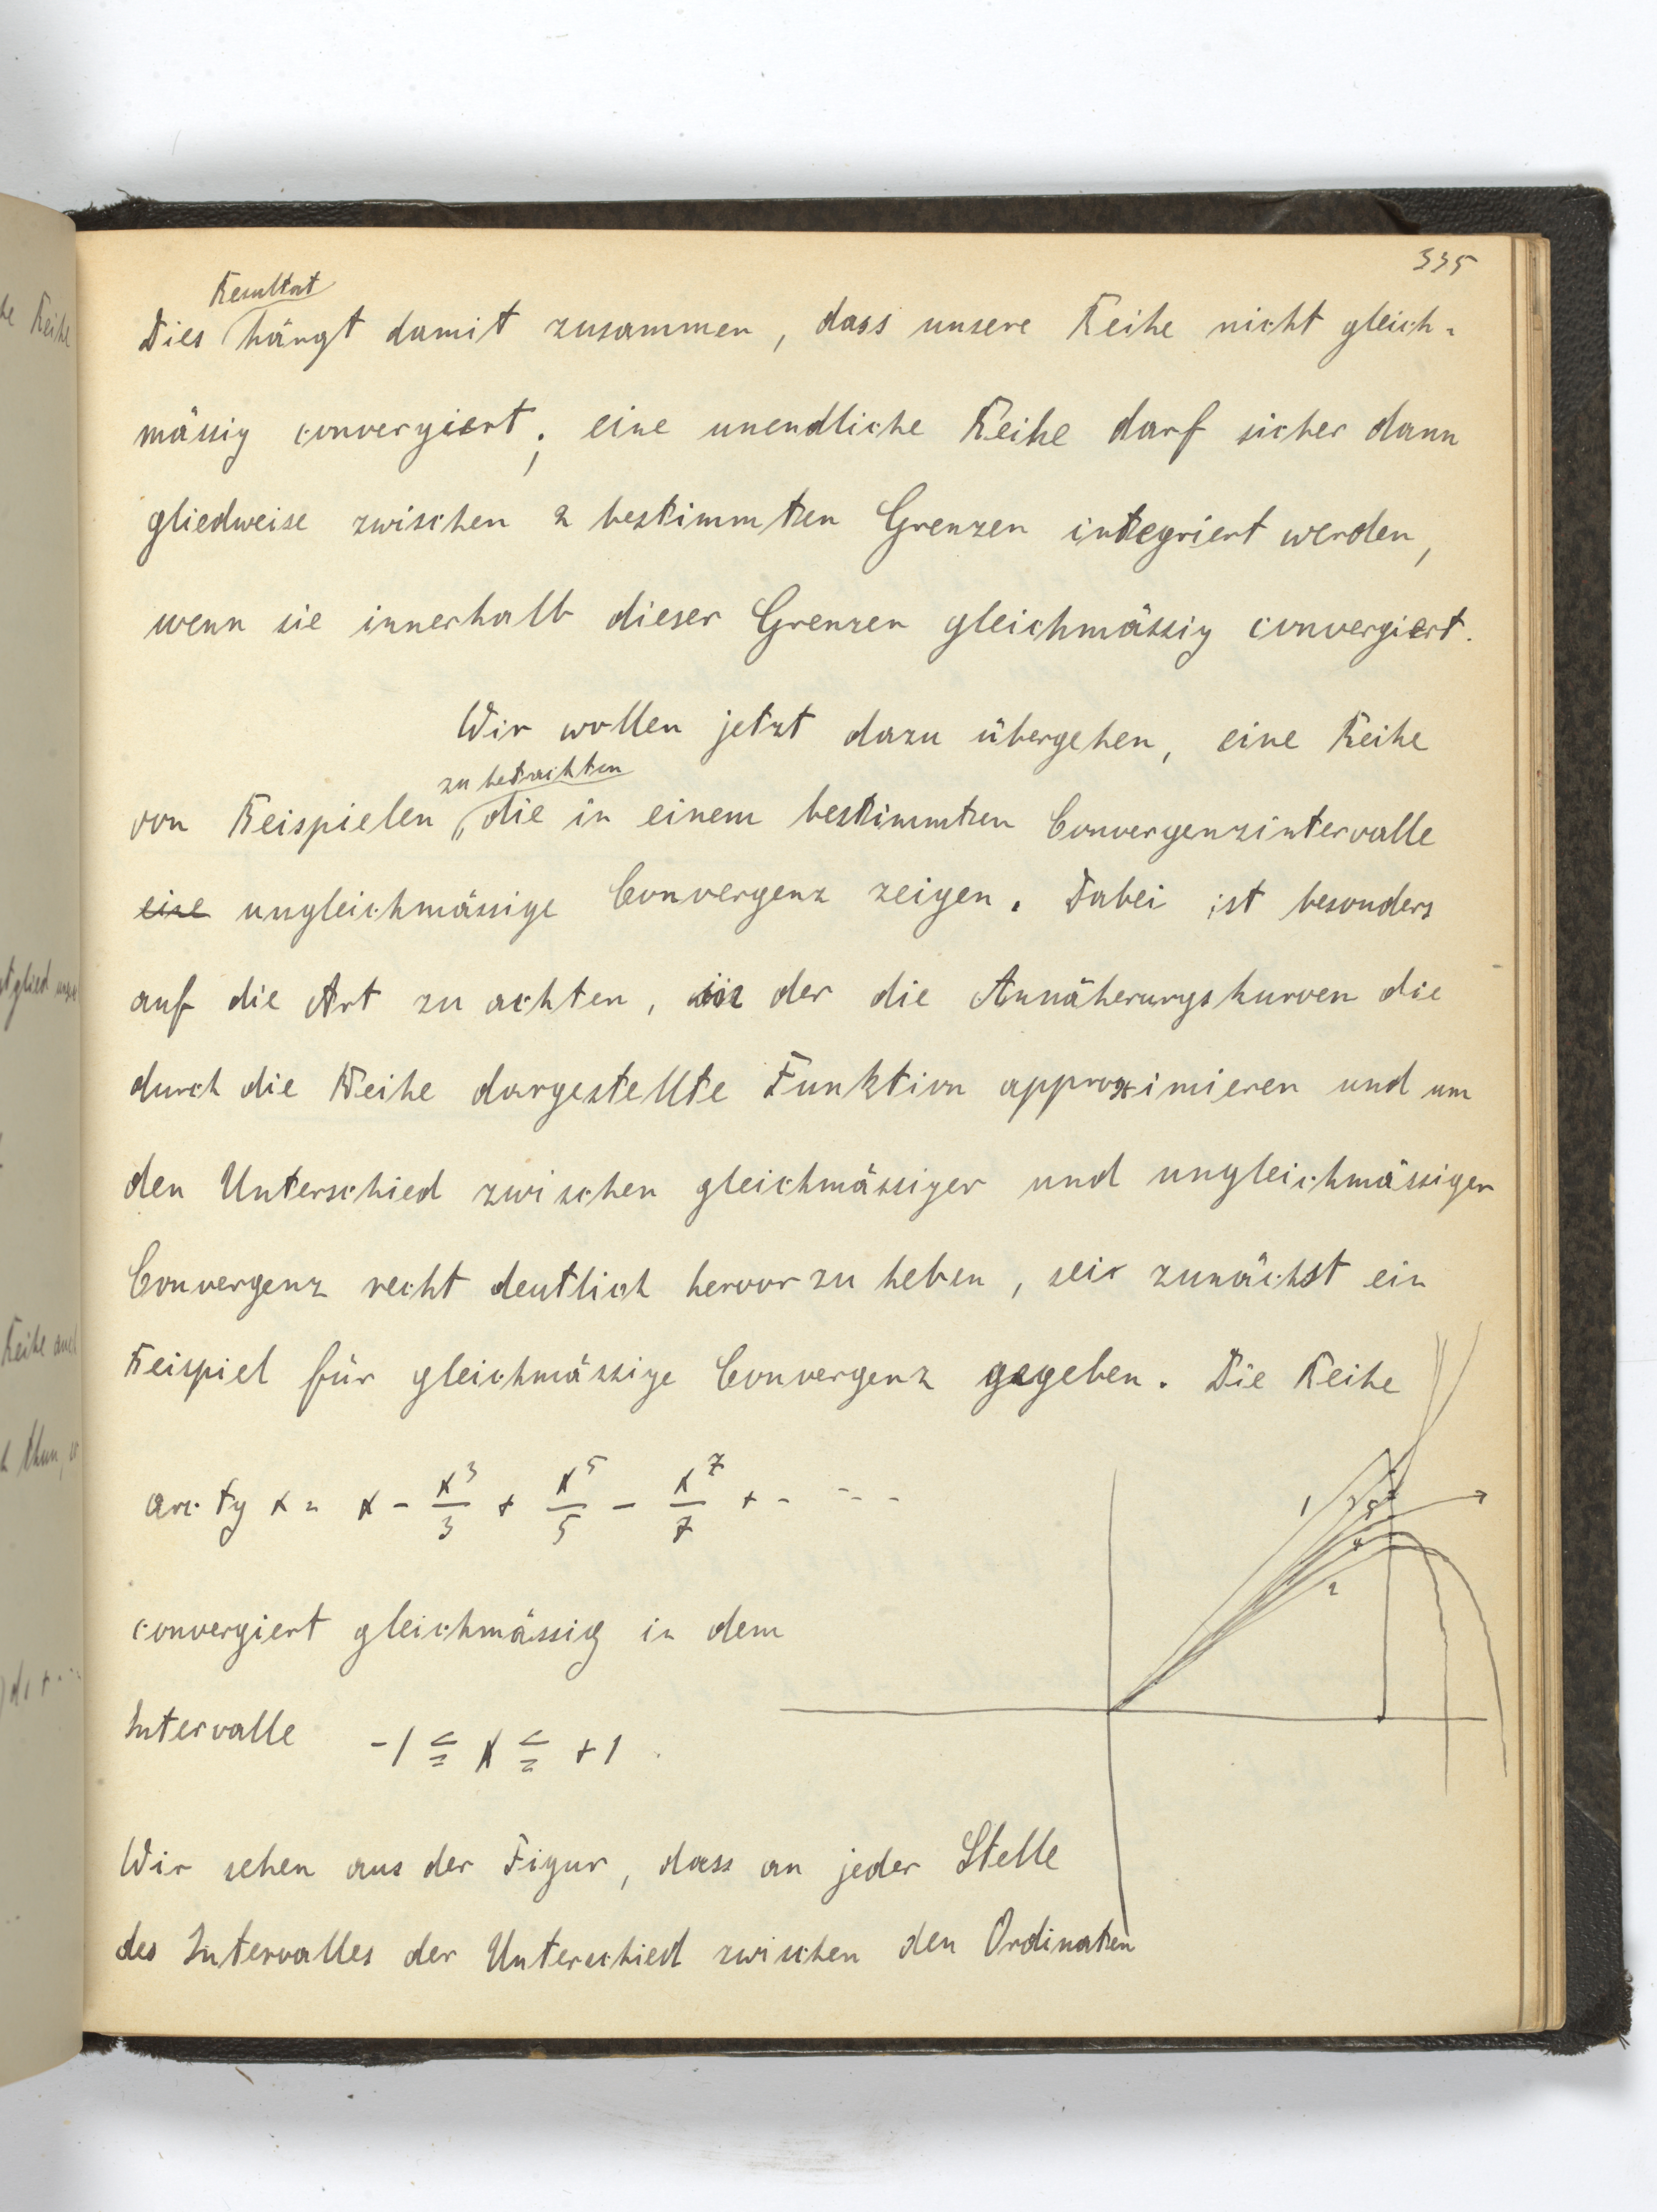 335
Resultat
Dies hängt damit zusammen, dass unsere Reihe nicht gleich-
mässig convergiert; eine unendliche Reihe darf sicher dann
gliedweise zwischen 2 bestimmten Grenzen integriert werden,
wenn sie innerhalb dieser Grenzen gleichmässig convergiert.
Wir wollen jetzt dazu übergehen, eine Reihe
zu betrachten
von Beispielen, die in einem bestimmten Convergenzintervalle
eine ungleichmässige Convergenz zeigen. Dabei ist besonders
auf die Art zu achten, in der die Annäherungskurven die
durch die Reihe dargestellte Funktion approximieren und um
den Unterschied zwischen gleichmässiger und ungleichmässiger
Convergenz recht deutlich hervorzuheben, sei zunächst ein
Beispiel für gleichmässige Convergenz gegeben. Die Reihe
arc tg x = x - x³/3 + x⁵/5 - x⁷/7 + - - - -
1 3 5
4
2
convergiert gleichmässig in dem
Intervalle -1 ≦ x ≦ +1.
Wir sehen aus der Figur, dass an jeder Stelle
des Intervalles der Unterschied zwischen den Ordinaten